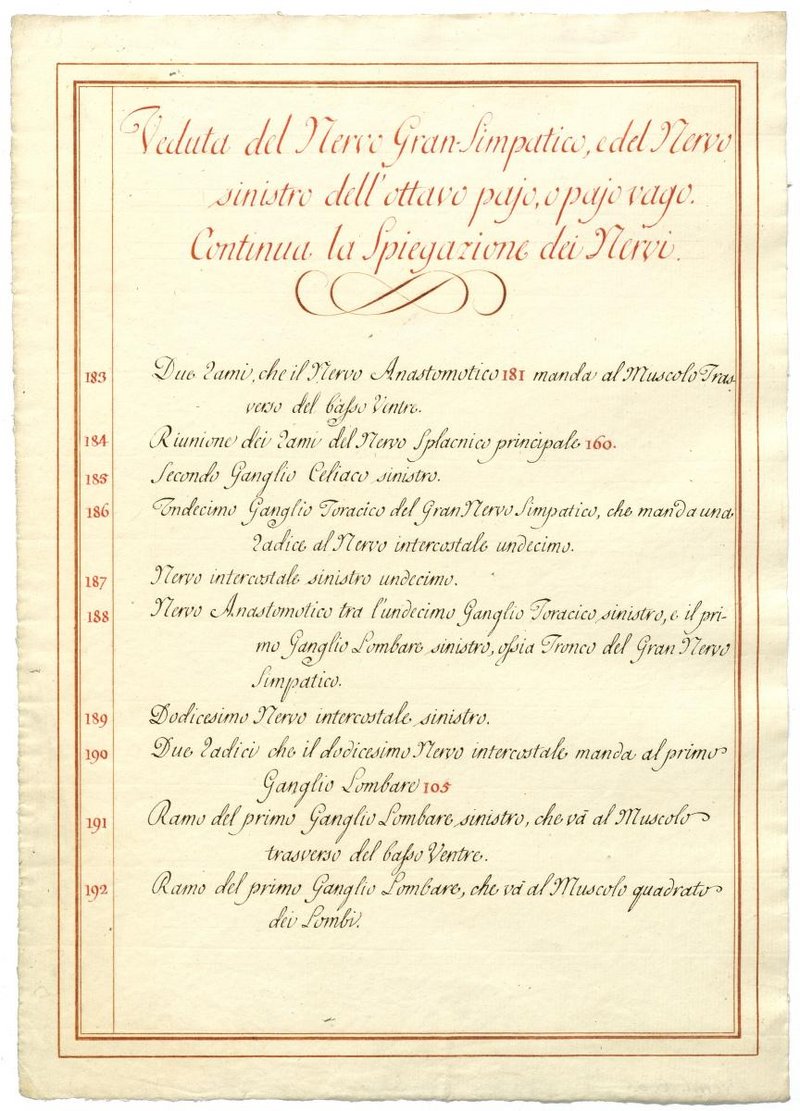 Veduta del Nervo Gran-Simpatico, e del Nervo
sinistro dell'ottavo pajo, o pajo vago.
Continua la Spiegazione dei Nervi.
183 Due Rami, che il Nervo Anastomotico 181 manda al Muscolo Tras-
verso del basso Ventre.
184 Riunione dei Rami del Nervo Splacnico principale 160.
185 Secondo Ganglio Celiaco sinistro.
186 Undecimo Ganglio Toracico del Gran Nervo Simpatico, che manda una
Radice al Nervo intercostale undecimo.
187 Nervo intercostale sinistro undecimo.
188 Nervo Anastomotico tra l'undecimo Ganglio Toracico sinistro, e il pri-
mo Ganglio Lombare sinistro, ossia Tronco del Gran Nervo
Simpatico.
189 Dodicesimo Nervo intercostale sinistro.
190 Due Radici che il dodicesimo Nervo intercostale manda al primo
Ganglio Lombare 105
191 Ramo del primo Ganglio Lombare sinistro, che và al Muscolo
trasverso del basso Ventre.
192 Ramo del primo Ganglio Lombare, che và al Muscolo quadrato
dei Lombi.